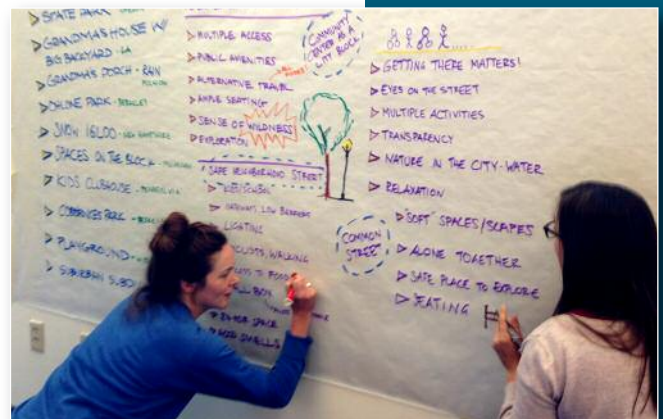 STATE PARK
GRANDMA'S HOUSE W/
BIG BACKYARD - LA
GRANDMA'S PORCH - RAIN
OHLONE PARK - BERKELEY
SNOW IGLOO - NEW HAMPSHIRE
SPACES ON THE BLOCK
KIDS CLUBHOUSE
PARK
PLAYGROUND
SUBURBAN
MULTIPLE ACCESS
PUBLIC AMENITIES
ALTERNATIVE TRAVEL
AMPLE SEATING
SENSE OF WILDNESS
EXPLORATION
SAFE NEIGHBORHOOD STREET
GATEWAYS, LOW BARRIERS
LIGHTING
WALKING
TO FOOD
BOX
SPACE
GOOD SMELLS
COMMUNITY
CENTER AS A
CITY BLOCK
GETTING THERE MATTERS!
EYES ON THE STREET
MULTIPLE ACTIVITIES
TRANSPARENCY
NATURE IN THE CITY - WATER
RELAXATION
SOFT SPACES/SCAPES
COMMON
STREET
ALONE TOGETHER
SAFE PLACE TO EXPLORE
SEATING